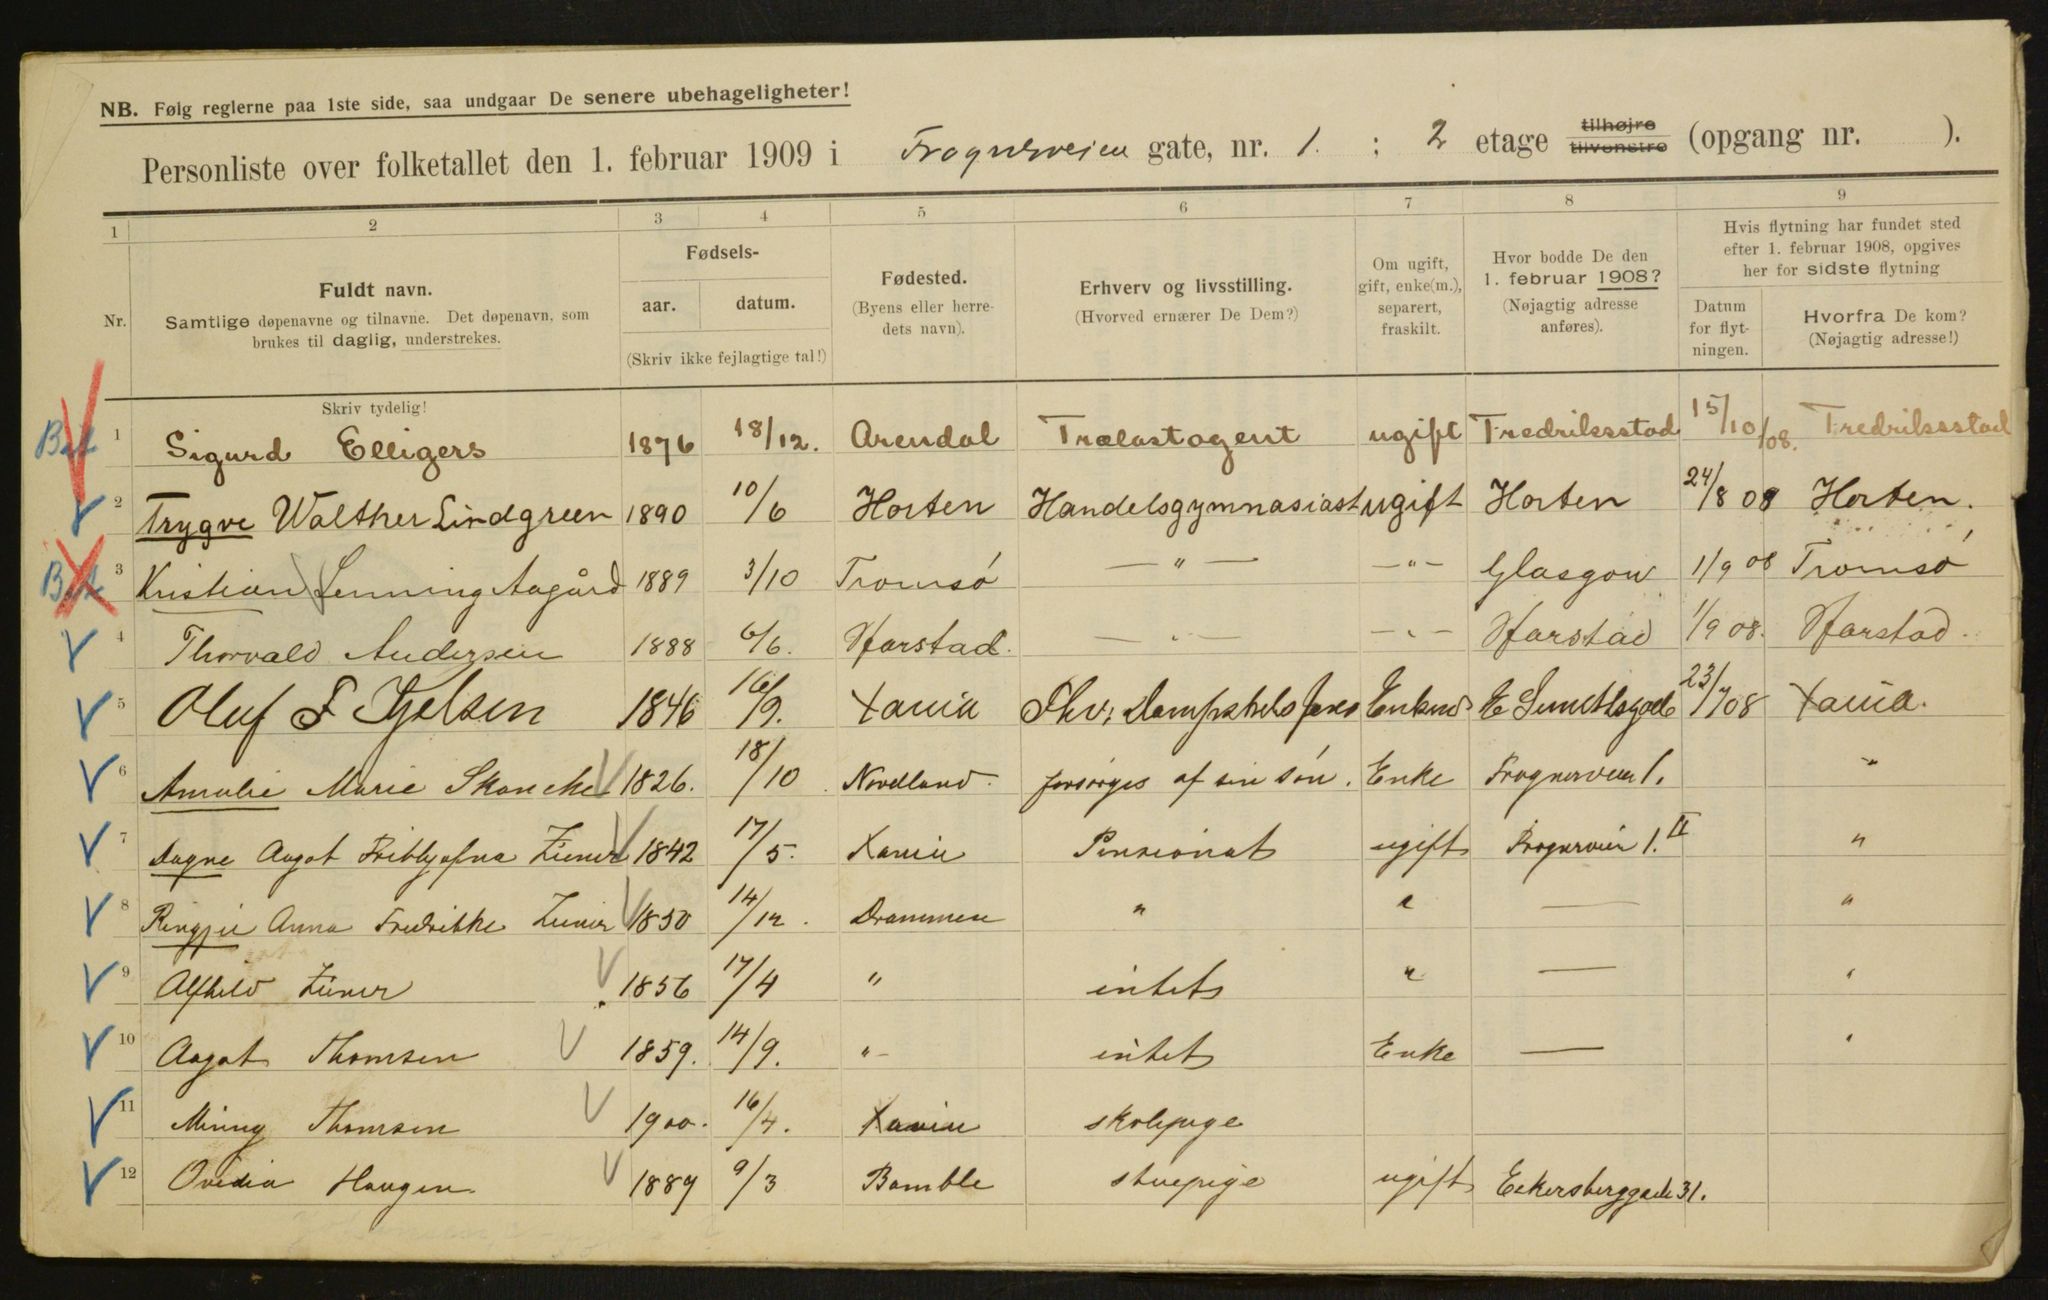 NB. Følg reglerne paa 1ste side, saa undgaar De senere ubehageligheter!
Personliste over folketallet den 1. februar 1909 i Frognerveien gate, nr. 1. ; 2 etage tilhøjre tilvenstre (opgang nr. ).
1 2 3 4 5 6 7 8 9
Nr. Fuldt navn. Samtlige døpenavne og tilnavne. Det døpenavn, som brukes til daglig, understrekes.
Fødsels- aar. datum. (Skriv ikke fejlagtige tal!)
Fødested. (Byens eller herredets navn).
Erhverv og livsstilling. (Hvorved ernærer De Dem?)
Om ugift, gift, enke(m.), separert, fraskilt.
Hvor bodde De den 1. februar 1908? (Nøjagtig adresse anføres).
Hvis flytning har fundet sted efter 1. februar 1908, opgives her for sidste flytning
Datum for flytningen.
Hvorfra De kom? (Nøjagtig adresse!)
Skriv tydelig!
Bet 1 Sigurd Elligers 1876 18/12. Arendal Trælastagent ugift Fredriksstad 15/10/08. Fredriksstad
2 Trygve Walther Lindgreen 1890 10/6 Horten Handelsgymnasiast ugift Horten 24/8 08 Horten.
Bet 3 Kristian Lenning Aagård 1889 3/10 Tromsø — " — — " — Glasgow 1/9 08 Tromsø
4 Thorvald Andersen 1888 6/6. Harstad. — " — — " — Harstad 1/9 08. Harstad.
5 Oluf F 1846 16/9. Xania 23/7 08 Xania.
6 Amalie Marie Skancke 1826. 18/10 Nordland. forsørges af sin søn. Enke Frognerveien 1. "
7 Dagne Aagot Zeiner 1842 17/5. Xania Pensionat ugift Frognerveien 1. II "
8 Anna Fredrikke Zeiner 1850 14/12. Drammen " " — "
9 Alfhild Zeiner 1856 17/4 " intet " — "
10 Aagot Thomsen 1859. 14/9. " intet Enke — "
11 Minny Thomsen 1900. 16/4. Xania skolepige
12 Ovidia Haugen 1889 9/3 Bamble stuepige ugift Eckersberggade 31.